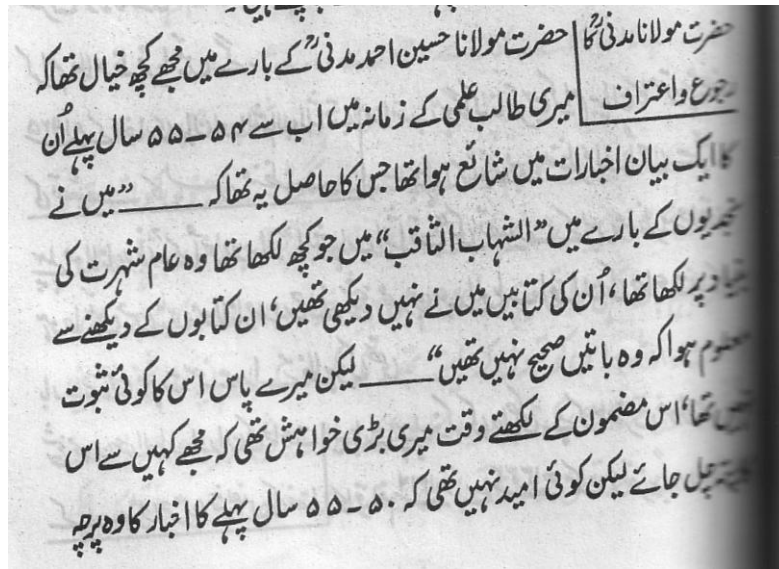 حضرت مولانا مدنیؒ کا
رجوع و اعتراف
حضرت مولانا حسین احمد مدنیؒ کے بارے میں مجھے کچھ خیال تھا کہ
میری طالب علمی کے زمانہ میں اب سے ۵۴ـ۵۵ سال پہلے اُن
کا ایک بیان اخبارات میں شائع ہوا تھا جس کا حاصل یہ تھا کہ ــــــ ”میں نے
نجدیوں کے بارے میں ”الشہاب الثاقب“ میں جو کچھ لکھا تھا وہ عام شہرت کی
بنیاد پر لکھا تھا، اُن کی کتابیں میں نے نہیں دیکھی تھیں، ان کتابوں کے دیکھنے سے
معلوم ہوا کہ وہ باتیں صحیح نہیں تھیں“ ــــــ لیکن میرے پاس اس کا کوئی ثبوت
نہیں تھا، اس مضمون کے لکھتے وقت میری بڑی خواہش تھی کہ مجھے کہیں سے اس
پتہ چل جائے لیکن کوئی امید نہیں تھی کہ ۵۰ـ۵۵ سال پہلے کا اخبار کا وہ پرچہ